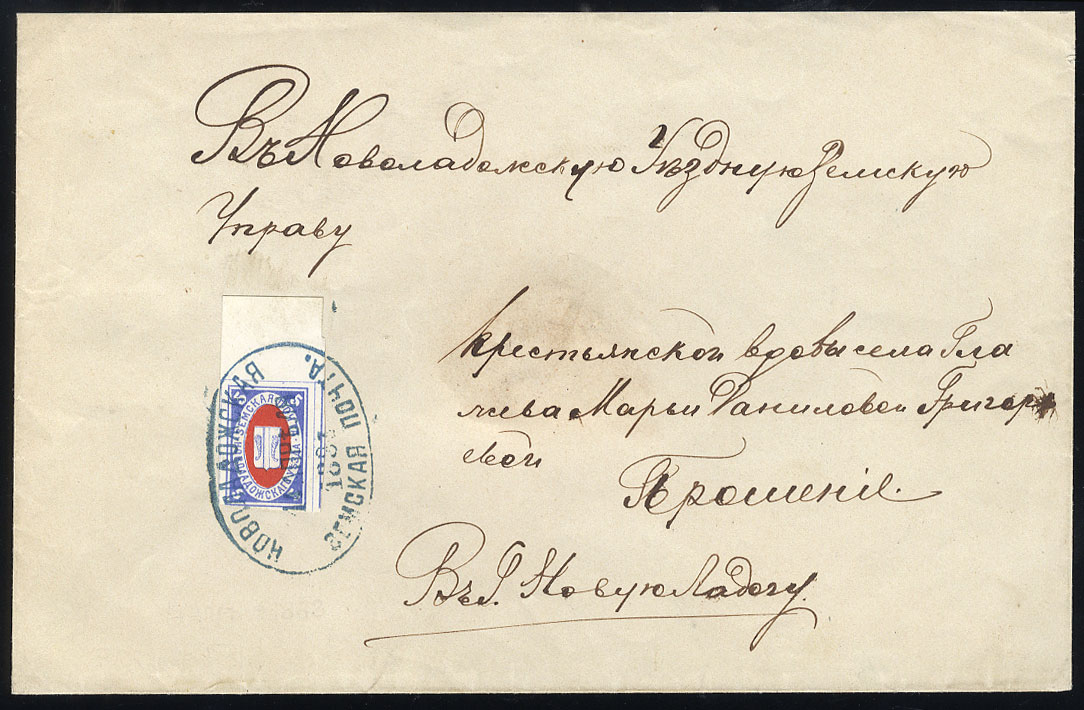 Въ Новоладожскую Уѣздную Земскую
Управу
крестьянской вдовы села Гла
жева Марьи Даниловой Григорь
евой
Прошеніе.
Въ Г. Новую Ладогу.
НОВОЛАДОЖСКАЯ
ЗЕМСКАЯ ПОЧТА.